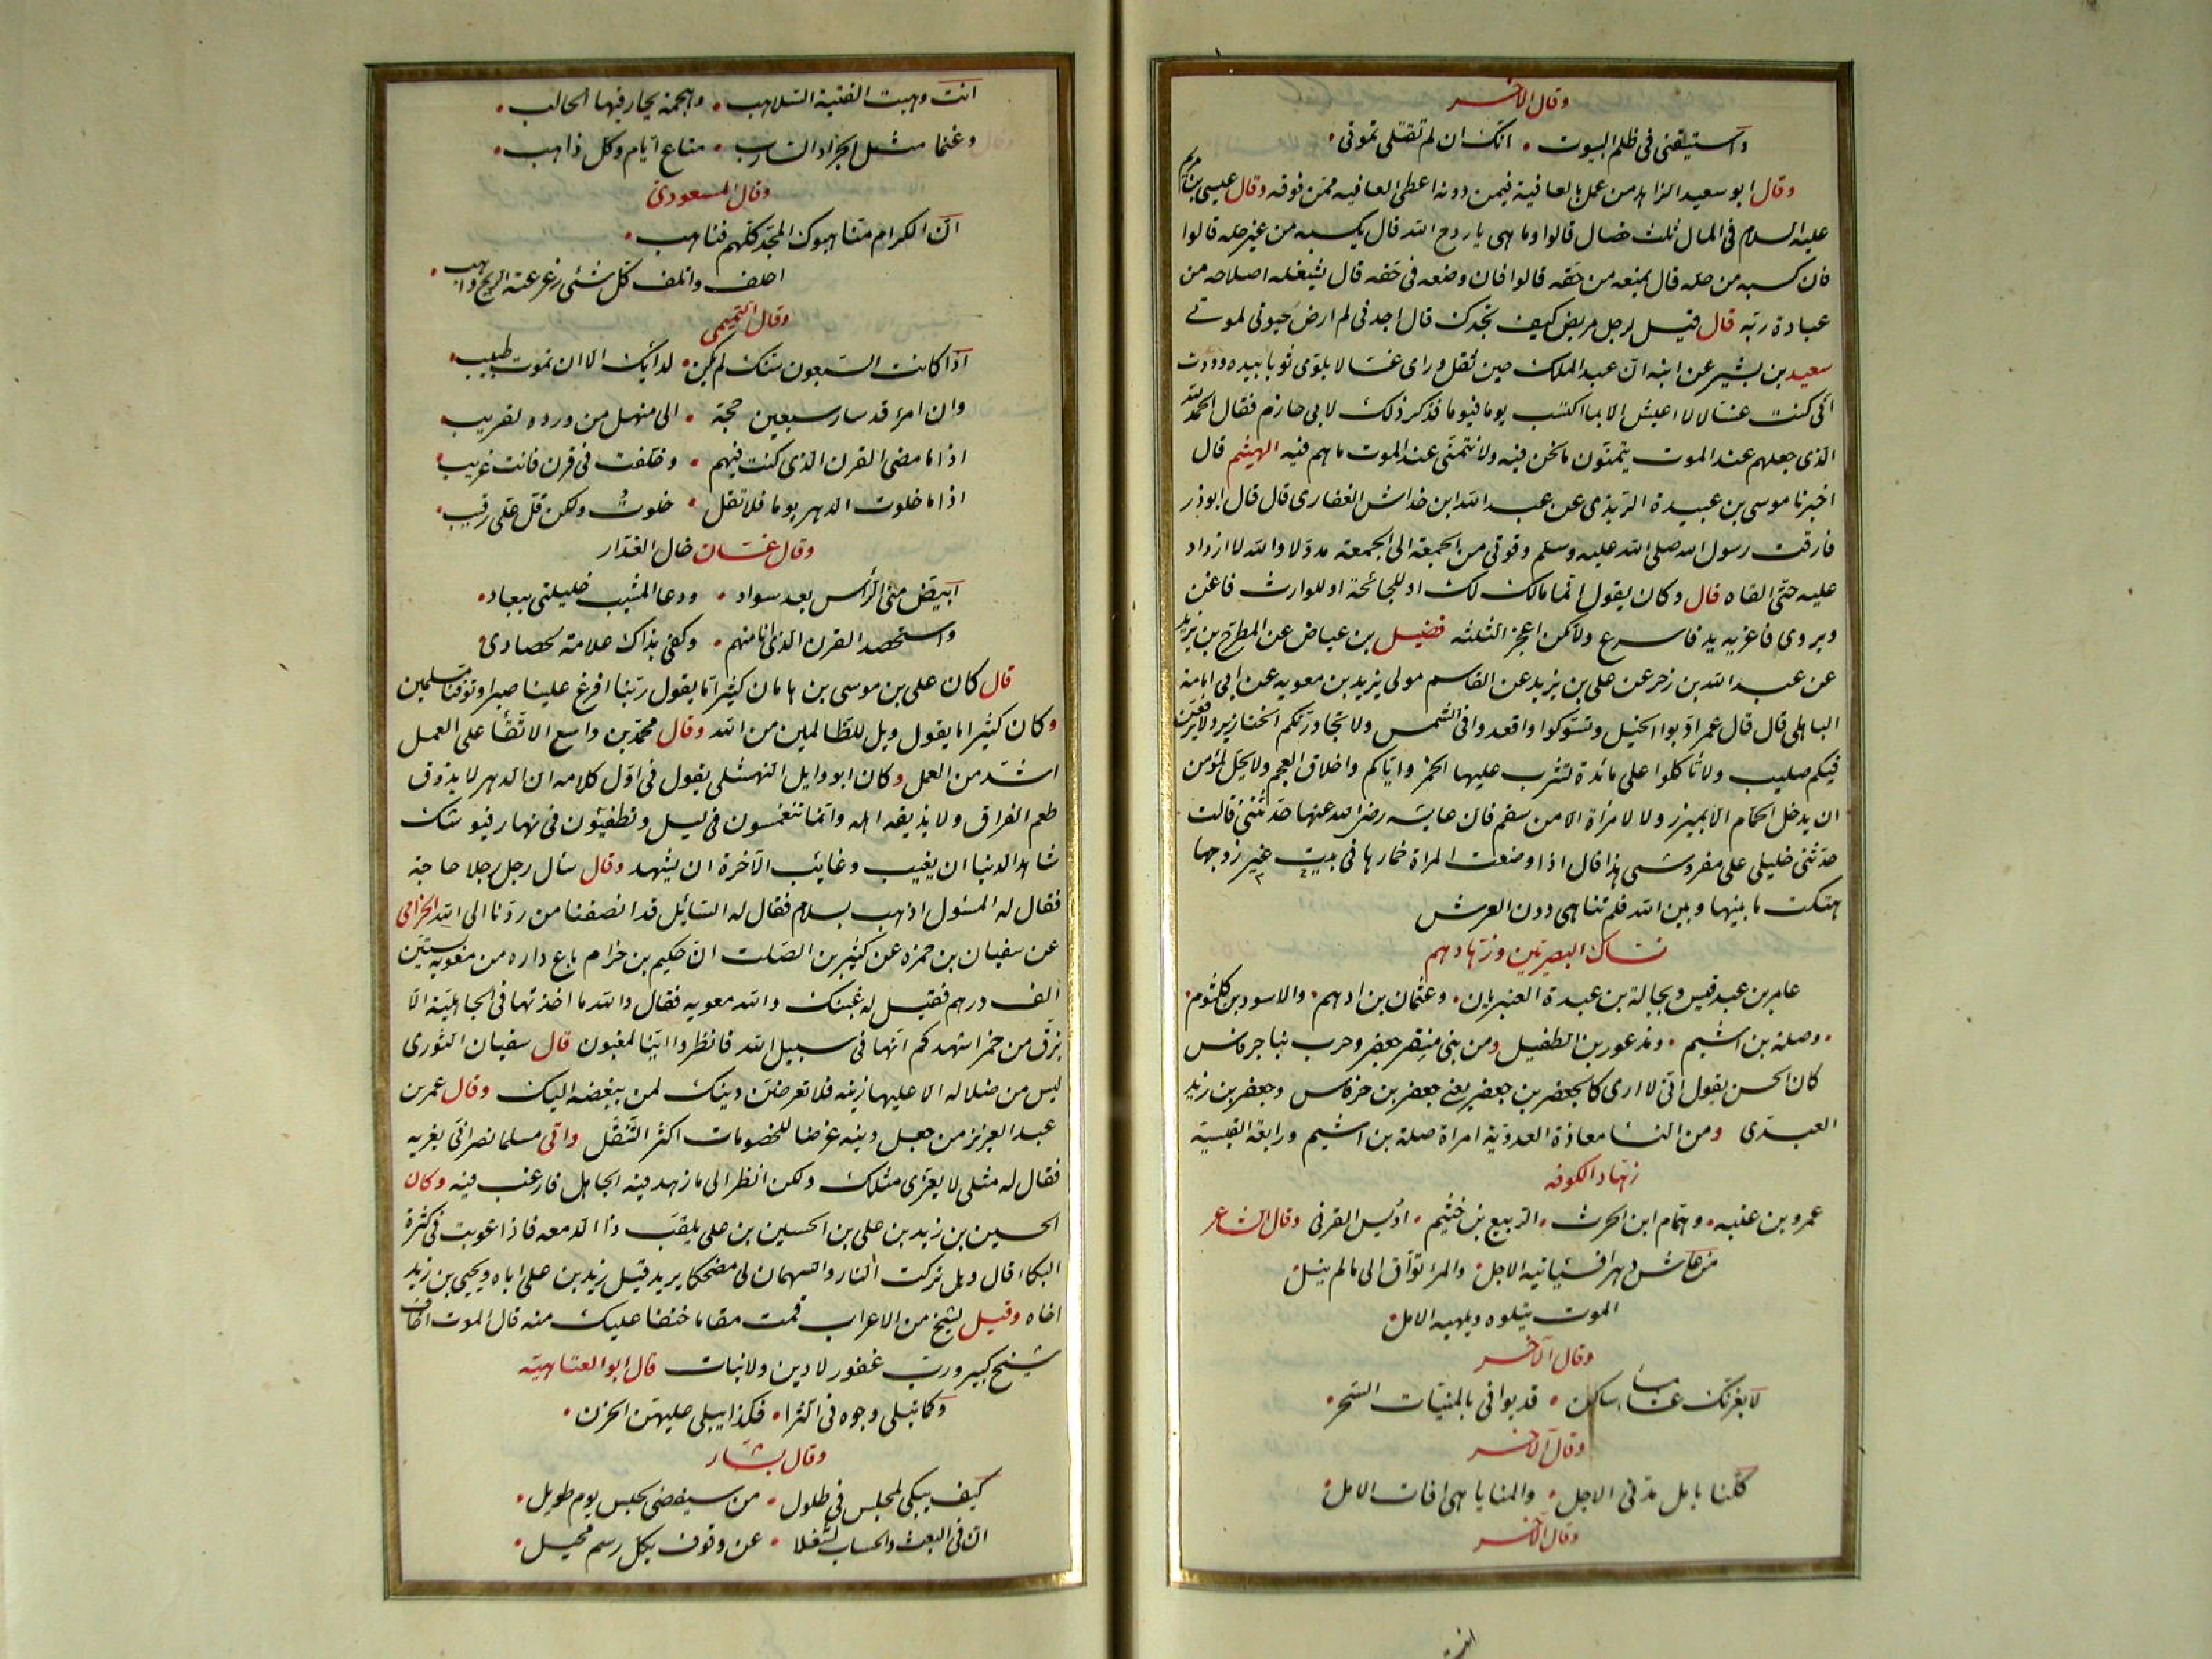 وقال الآخر
واستيقني في ظلم البيوت • انك ان لم تقتلي تموتي •
وقال ابو سعيد الزاهد من عمل بالعافية فيمن دونه اعطى العافيه ممن فوقه وقال عيسى بن مريم
عليه السلام في المال ثلث خصال قالوا وما هي يا روح الله قال يكسبه من غير حله قالوا
فان كسبه من حله قال يمنعه من حقه قالوا فان وضعه في حقه قال يشغله اصلاحه من
عبادة ربه قال قيل لرجل مريض كيف تجدك قال اجدني لم ارض حيوتي لموتي
سعيد بن بشير عن ابيه ان عبد الملك حين ثقل وراى غسالا يلوى ثوبا بيده وددت
اني كنت غسالا لا اعيش الا بما اكتسب يوما فيوما فذكر ذلك لابي حازم فقال الحمد لله
الذي جعلهم عند الموت يتمنون ما نحن فيه ولا نتمنى عند الموت ما هم فيه الهيثم قال
اخبرنا موسى بن عبيدة الربذي عن عبد الله ابن خداش الغفاري قال قال ابوذر
فارقت رسول الله صلى الله عليه وسلم وقوتي من الجمعة الى الجمعة مد ولا والله لا ازداد
عليه حتى القاه قال وكان يقول انما مالك لك او للجائحة او للوارث فاغن
ولا تكن اعجز الثلثه فضيل بن عياض عن المطرح بن يزيد
عن عبد الله بن زحر عن علي بن يزيد عن القاسم مولى يزيد بن معويه عن ابي امامة
الباهلي قال قال عمر ادبوا الخيل وتسوكوا واقعدوا في الشمس ولا تجاورنكم الخنازير ولا يرفعن
فيكم صليب ولا تاكلوا على مائدة تشرب عليها الخمر واياكم واخلاق العجم ولا يحل لمؤمن
ان يدخل الحمام الا بميزر ولا لامرأة الا من سقم فان عايشه رضي الله عنها حدثتني قالت
حدثني خليلي على مفرشي هذا قال اذا وضعت المراة خمارها في بيت غير زوجها
هتكت ما بينها وبين الله فلم تناهى دون العرش
نساك البصريين وزهادهم
عامر بن عبد قيس وبجالة بن عبدة العنبريان • وعثمان بن ادهم • والاسود بن كلثوم •
• وصلة بن اشيم • ومذعور بن الطفيل ومن بني منقر جعفر وحرب
كان الحسن يقول اني لا ارى كالجعفرين جعفر يعني جعفر بن جرفاس وجعفر بن زيد
العبدي ومن النسا معاذة العدوية امراة صلة بن اشيم ورابعة القيسية
زهاد الكوفه
عمرو بن عتبه • وهمام ابن الحرث • الربيع بن خثيم • اويس القرني وقال الشاعر
من عاش دهرا فسياتيه الاجل • والمر تواق الى ما لم ينل •
الموت يتلوه ويلهيه الامل •
وقال الآخر
لا يغرنك عشا ساكن • قد يوافي بالمنيات السحر •
وقال الآخر
كلنا يامل مد في الاجل • والمنايا هي افات الامل •
وقال الآخر
انت وهبت الفتية السلاهب • وهجمة يحار فيها الحالب •
وغنما مثل الجراد السارب • متاع ايام وكل ذاهب •
وقال المسعودي
ان الكرام مناهبوك المجد كلهم فناهب •
اخلف واتلف كل شئ زعزعته الريح ذاهب •
وقال التميمي
اذا كانت السبعون سنك لم يكن • لدايك الا ان تموت طبيب •
وان امرء قد سار سبعين حجة • الى منهل من ورده لقريب •
اذا ما مضى القرن الذي كنت فيهم • وخلفت في قرن فانت غريب •
اذا ما خلوت الدهر يوما فلا تقل • خلوت ولكن قل على رقيب •
وقال غسان خال الغدار
ابيض مني الرأس بعد سواد • ودعا المشيب خليلتي ببعاد •
واستحصد القرن الذي انا منهم • وكفى بذاك علامة لحصادي •
قال كان علي بن موسى بن هامان كثيرا ما يقول ربنا افرغ علينا صبرا وتوفنا مسلمين
وكان كثيرا ما يقول ويل للظالمين من الله وقال محمد بن واسع الاتقا على العمل
اشد من العمل وكان ابو وايل النهشلي يقول في اول كلامه ان الدهر لا يذوق
طعم الفراق ولا يذيقه اهله وانما تنغمسون في ليل وتطفئون في نهار فيوشك
شاهد الدنيا ان يغيب وغائب الآخرة ان يشهد وقال سأل رجل رجلا حاجة
فقال له المسئول اذهب بسلام فقال له السائل قد انصفنا من ردنا الى الله الحزامي
عن سفيان بن حمزه عن كثير بن الصلت ان حكيم بن حزام باع داره من معويه بستين
الف درهم فقيل له غبنك والله معويه فقال والله ما اخذتها في الجاهلية الا
بزق من خمر اشهدكم انها في سبيل الله فانظروا اينا المغبون قال سفيان الثوري
ليس من ضلاله الا عليها زينه فلا تعرضن دينك لمن يبغضه اليك وقال عمر بن
عبد العزيز من جعل دينه غرضا للخصومات اكثر التنقل واتى مسلما نصراني يعزيه
فقال له مثلي لا يعزى مثلك ولكن انظر الى ما زهد فيه الجاهل فارغب فيه وكان
الحسين بن زيد بن علي بن الحسين بن علي يلقب ذا الدمعه فاذا عوتب في كثرة
البكاء قال وهل تركت النار والسهمان لي مضحكا يريد قتل زيد بن علي اباه ويحيى بن زيد
اخاه وقيل لشيخ من الاعراب قمت مقاما خفنا عليك منه قال الموت اخاف
شيخ كبير ورب غفور لا دين ولا بنات قال ابو العتاهية
وكما تبلى وجوه في الثرا • فكذا يبلى عليهن الحزن •
وقال بشار
كيف يبكي لمحبس في طلول • من سيفضي لحبس يوم طويل •
ان في البعث والحساب لشغلا • عن وقوف بكل رسم محيل •